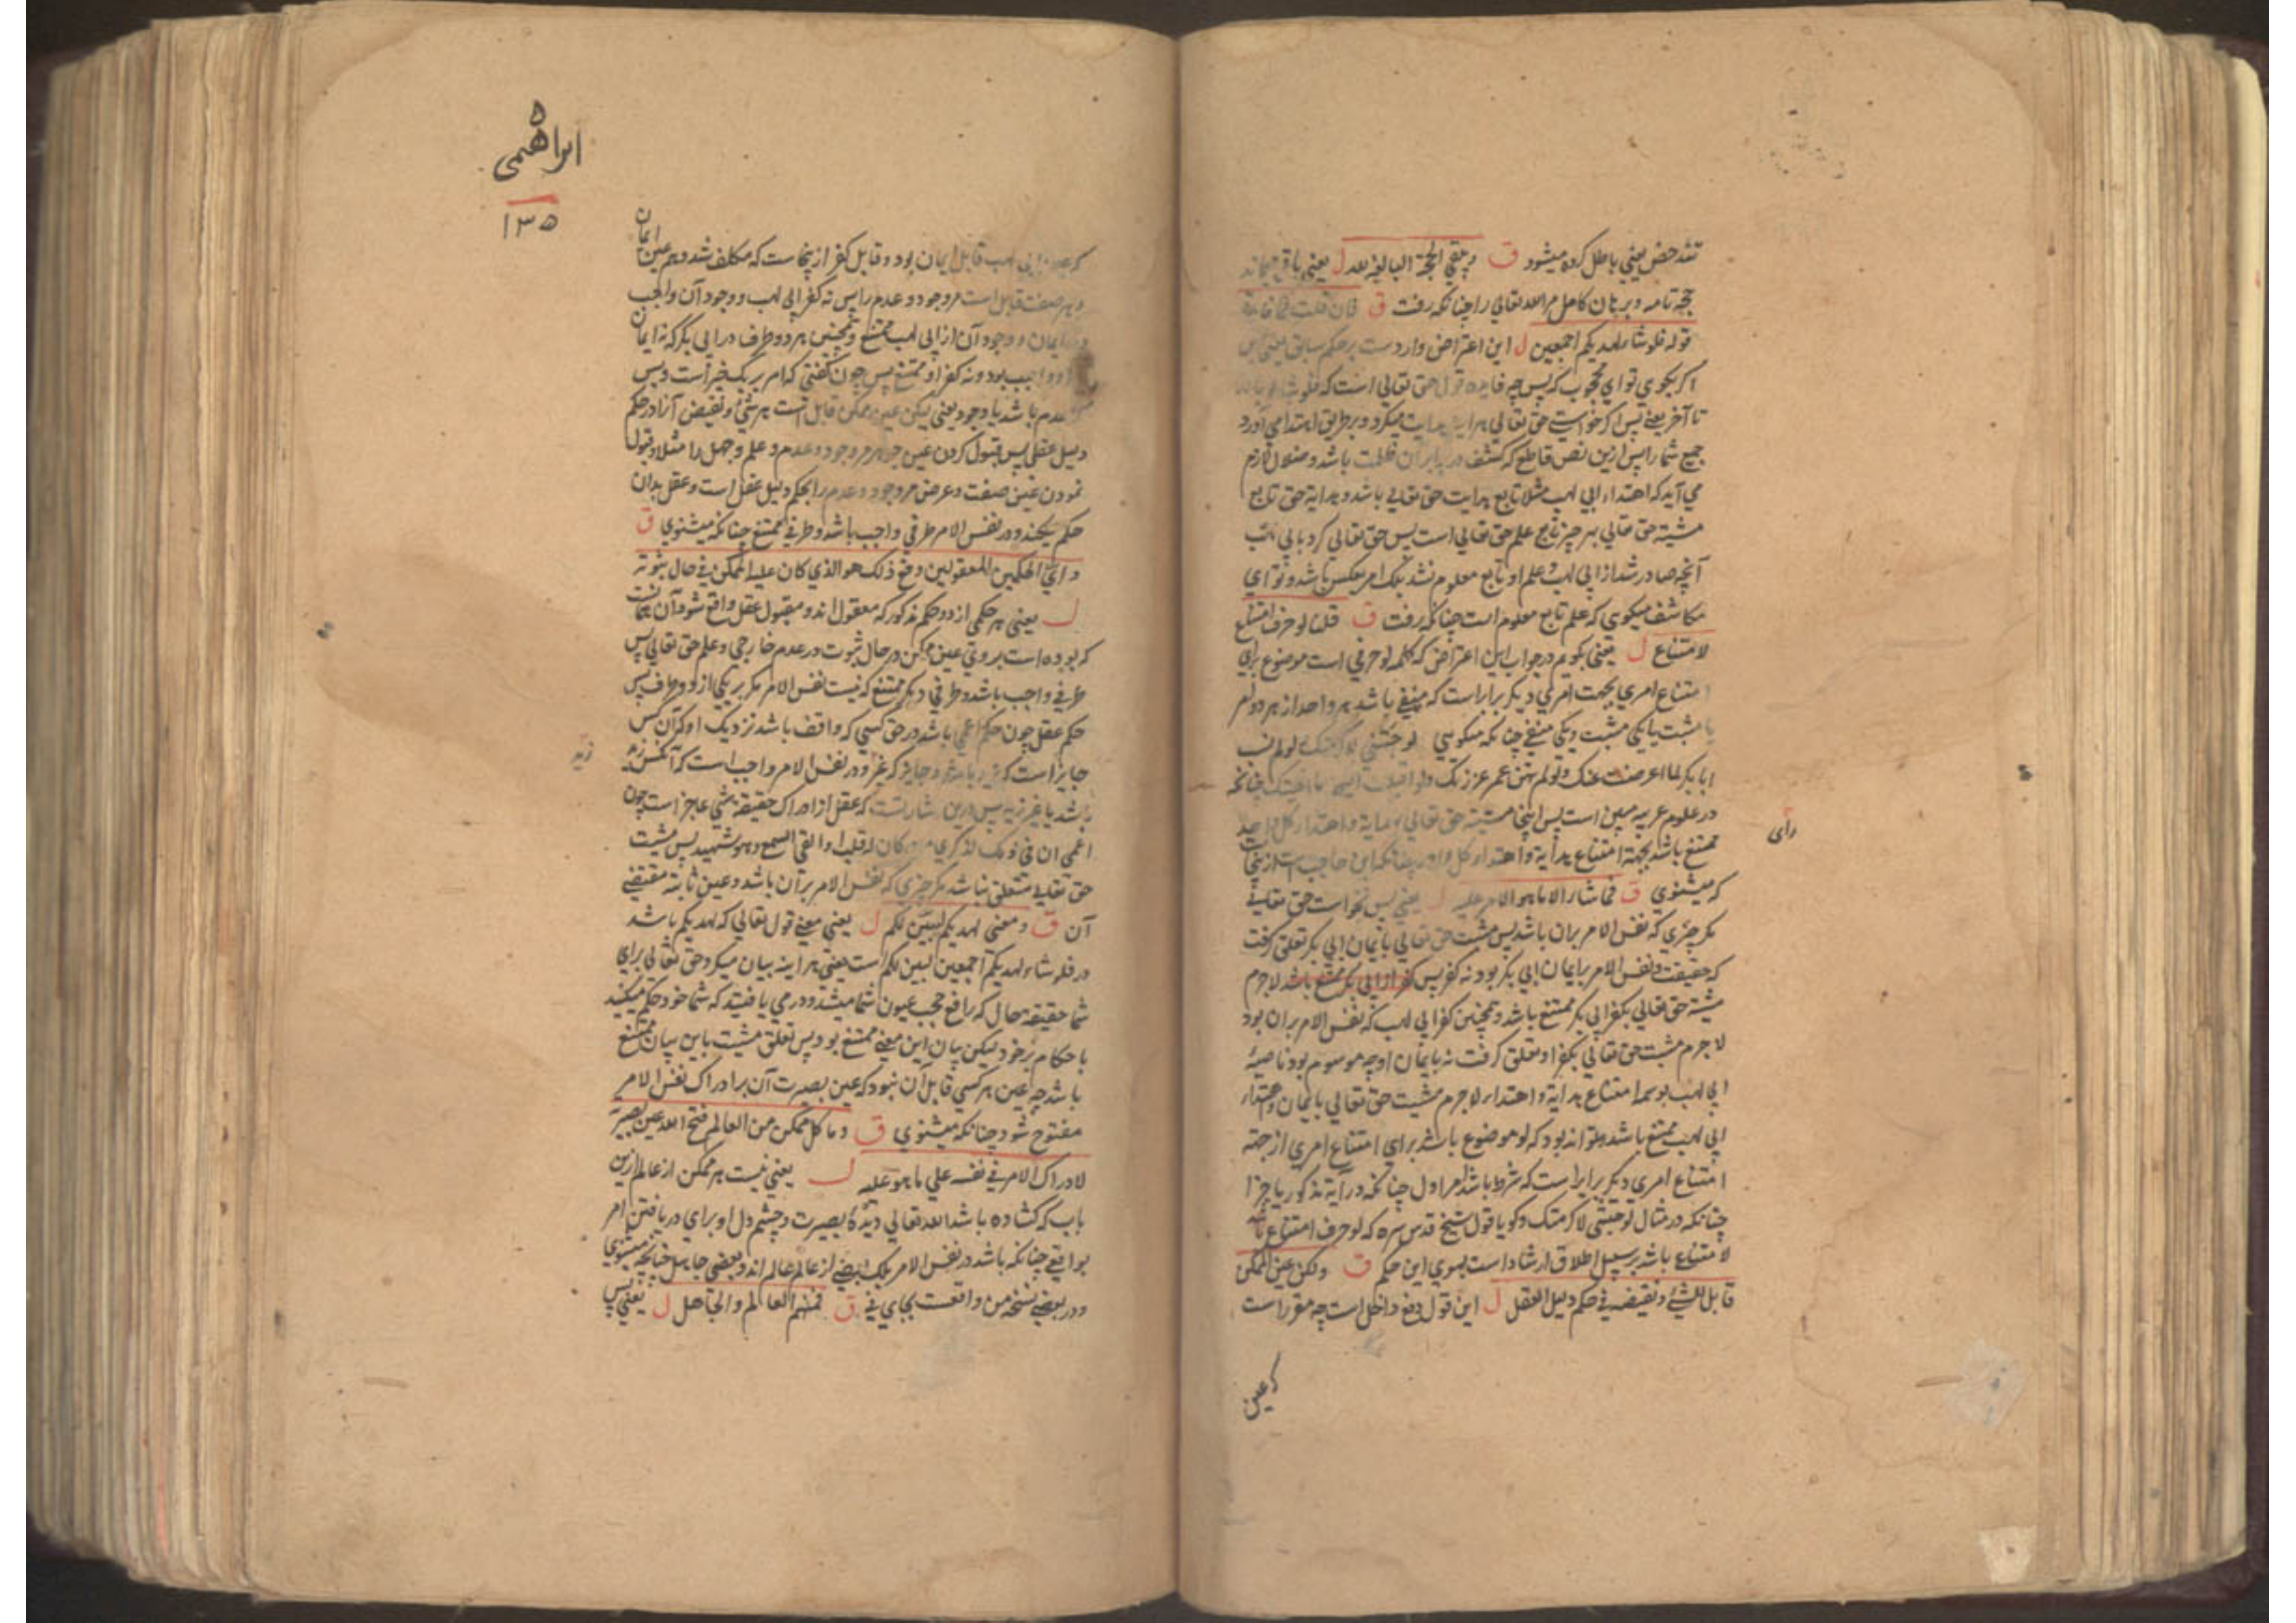 تندحض یعنی باطل کرده میشود ق و یبقی الحجة البالغة لله ل یعنی باقی میماند
حجة تامه و برهان کامل مر الله تعالی را چنانکه رفت ق فان قلت فما فایدة
قوله فلو شاء لهدیکم اجمعین ل این اعتراض واردست بر حکم سابق یعنی پس
اکر بکوی تو ای محجوب که پس چه فایده قول حق تعالی است که فلو شاء
تا آخر یعنی پس اکر خواستی حق تعالی هر اینه هدایت میکرد و بر طریق اهتدا می آورد
جمیع شما را پس ازین نص قاطع که کشف در برابر آن ظلمت باشد و ضلال لازم
می آید که اهتداء ابی لهب مثلا تابع هدایت حق تعالی باشد و هدایة حق تابع
مشیة حق تعالی بهر چیز تابع علم حق تعالی است پس حق تعالی کرد بابی لهب
آنچه صادر شد از ابی لهب و علم او تابع معلوم نشد بلک امر بعکس باشد و تو ای
مکاشف میکوی که علم تابع معلوم است چنانکه رفت ق قلنا لو حرف امتناع
لامتناع ل یعنی بکویم در جواب این اعتراض که کلمه لو حرفی است موضوع برای
امتناع امری بجهت امری دیکر برابر است که منفی باشد هر واحد از هر دو امر
یا مثبت یا یکی مثبت و یکی منفی چنانکه میکویی لو جئتنی لاکرمتک و لو لم تسب
ابابکر لما اعرضت عنک و لو لم تهن عمر عززتک
در علوم عربیه مبین است پس اینجا مشیة حق تعالی هدایة و اهتداء کل واحد
رای
ممتنع باشد بجهة امتناع هدایة و اهتداء کل واحد چنانکه ابن حاجب است ازینجا
که میشنوی ق فما شاء الا ما هو الامر علیه ل یعنی پس نخواست حق تعالی
مکر چیزی که نفس الامر بران باشد پس مشیت حق تعالی بایمان ابی بکر تعلق کرفت
که حقیقت و نفس الامر بر ایمان ابی بکر بود نه کفر پس کفر از ابی بکر ممتنع باشد لاجرم
مشیة حق تعالی بکفر ابی بکر ممتنع باشد و همچنین کفر ابی لهب که نفس الامر بران بود
لاجرم مشیت حق تعالی بکفر او تعلق کرفت نه بایمان او چه موسوم بود ناصیهٔ
ابی لهب بوسمه امتناع هدایة و اهتداء لاجرم مشیت حق تعالی بایمان و اهتداء
ابی لهب ممتنع باشد و تواند بود که لو موضوع باشد برای امتناع امری از جهة
امتناع امری دیکر برابر است که شرط باشد امر اول چنانکه در آیة مذکور یا جزا
چنانکه در مثال لو جئتنی لاکرمتک و کویا قول شیخ قدس سره که لو حرف امتناع
لامتناع باشد بر سبیل اطلاق ارشاد است بسوی این حکم ق ولکن عین الممکن
قابل للشئ و نقیضه فی حکم دلیل العقل ل این قول دفع دخل است چه مقرر است
که عین
ابراهیمی
۱۳۵
که عین ابی لهب قابل ایمان بود و قابل کفر ازینجا ست که مکلف شد و هر عین
ایمان
و هر صفت قابل است مر وجود و عدم را پس نه کفر ابی لهب و وجود آن واجب
ایمان و وجود آن از ابی لهب ممتنع و همچنین هر دو طرف در ابی بکر که نه ایمان
او واجب بود و نه کفر او ممتنع پس چون کفتی که امر بر یک خبر است و بس
عدم باشد یا وجود یعنی لیکن عین ممکن قابل است هر شئ و نقیض آنرا در حکم
دلیل عقلی پس قبول کردن عین جوهر مر وجود و عدم و علم و جهل را مثلا و قبول
نمودن عین صفت و عرض مر وجود و عدم را بحکم دلیل عقل است و عقل بدان
حکم بکند و در نفس الامر طرفی واجب باشد و طرفی ممتنع چنانکه میشنوی ق
و ای الحکمین المعقولین وقع ذلک هو الذی کان علیه الممکن فی حال ثبوته
ل یعنی هر حکمی از دو حکم مذکور که معقول اند و مقبول عقل واقع شود آن همانست
که بوده است بروی عین ممکن در حال ثبوت در عدم خارجی و علم حق تعالی پس
طرفی واجب باشد و طرفی دیکر ممتنع که نیست نفس الامر مکر بر یکی از دو طرف پس
حکم عقل چون حکم اعمی باشد در حق کسی که واقف باشد نزدیک او که آن کس
زید
جایز است که زید باشد و جایز که غیر او و در نفس الامر واجب است که آنکس زید
باشد یا غیر زید پس درین اشارتست که عقل از ادراک حقیقة شی عاجز است چون
اعمی ان فی ذلک لذکری لمن کان له قلب او القی السمع و هو شهید پس مشیت
حق تعالی متعلق نباشد مکر چیزی که نفس الامر بر آن باشد و عین ثابته مقتضی
آن ق و معنی لهدیکم لیبین لکم ل یعنی معنی قول تعالی که لهدیکم باشد
در فلو شاء لهدیکم اجمعین لبین لکم است یعنی هر اینه بیان میکرد حق تعالی برای
شما حقیقة حال که رافع حجب عیون شما میشد و در می یافتید که شما خود حکم میکنید
باحکام بر خود لیکن بیان این معنی ممتنع بود پس تعلق مشیت باین بیان ممتنع
باشد چه عین هر کسی قابل آن نبود که عین بصیرت آن بر ادراک نفس الامر
مفتوح شود چنانکه میشنوی ق و ما کل ممکن من العالم فتح الله عین بصیرته
لادراک الامر فی نفسه علی ما هو علیه ل یعنی نیست هر ممکن از عالم ازین
باب که کشاده باشد الله تعالی دیدهٔ بصیرت و چشم دل او برای دریافتن امر
بواقعی چنانکه باشد در نفس الامر بلک بعضی از عالم عالم اند و بعضی جاهل چنانچه میشنوی
و در بعضی نسخه من واقعست بجای فی ق فمنهم العالم و الجاهل ل یعنی پس